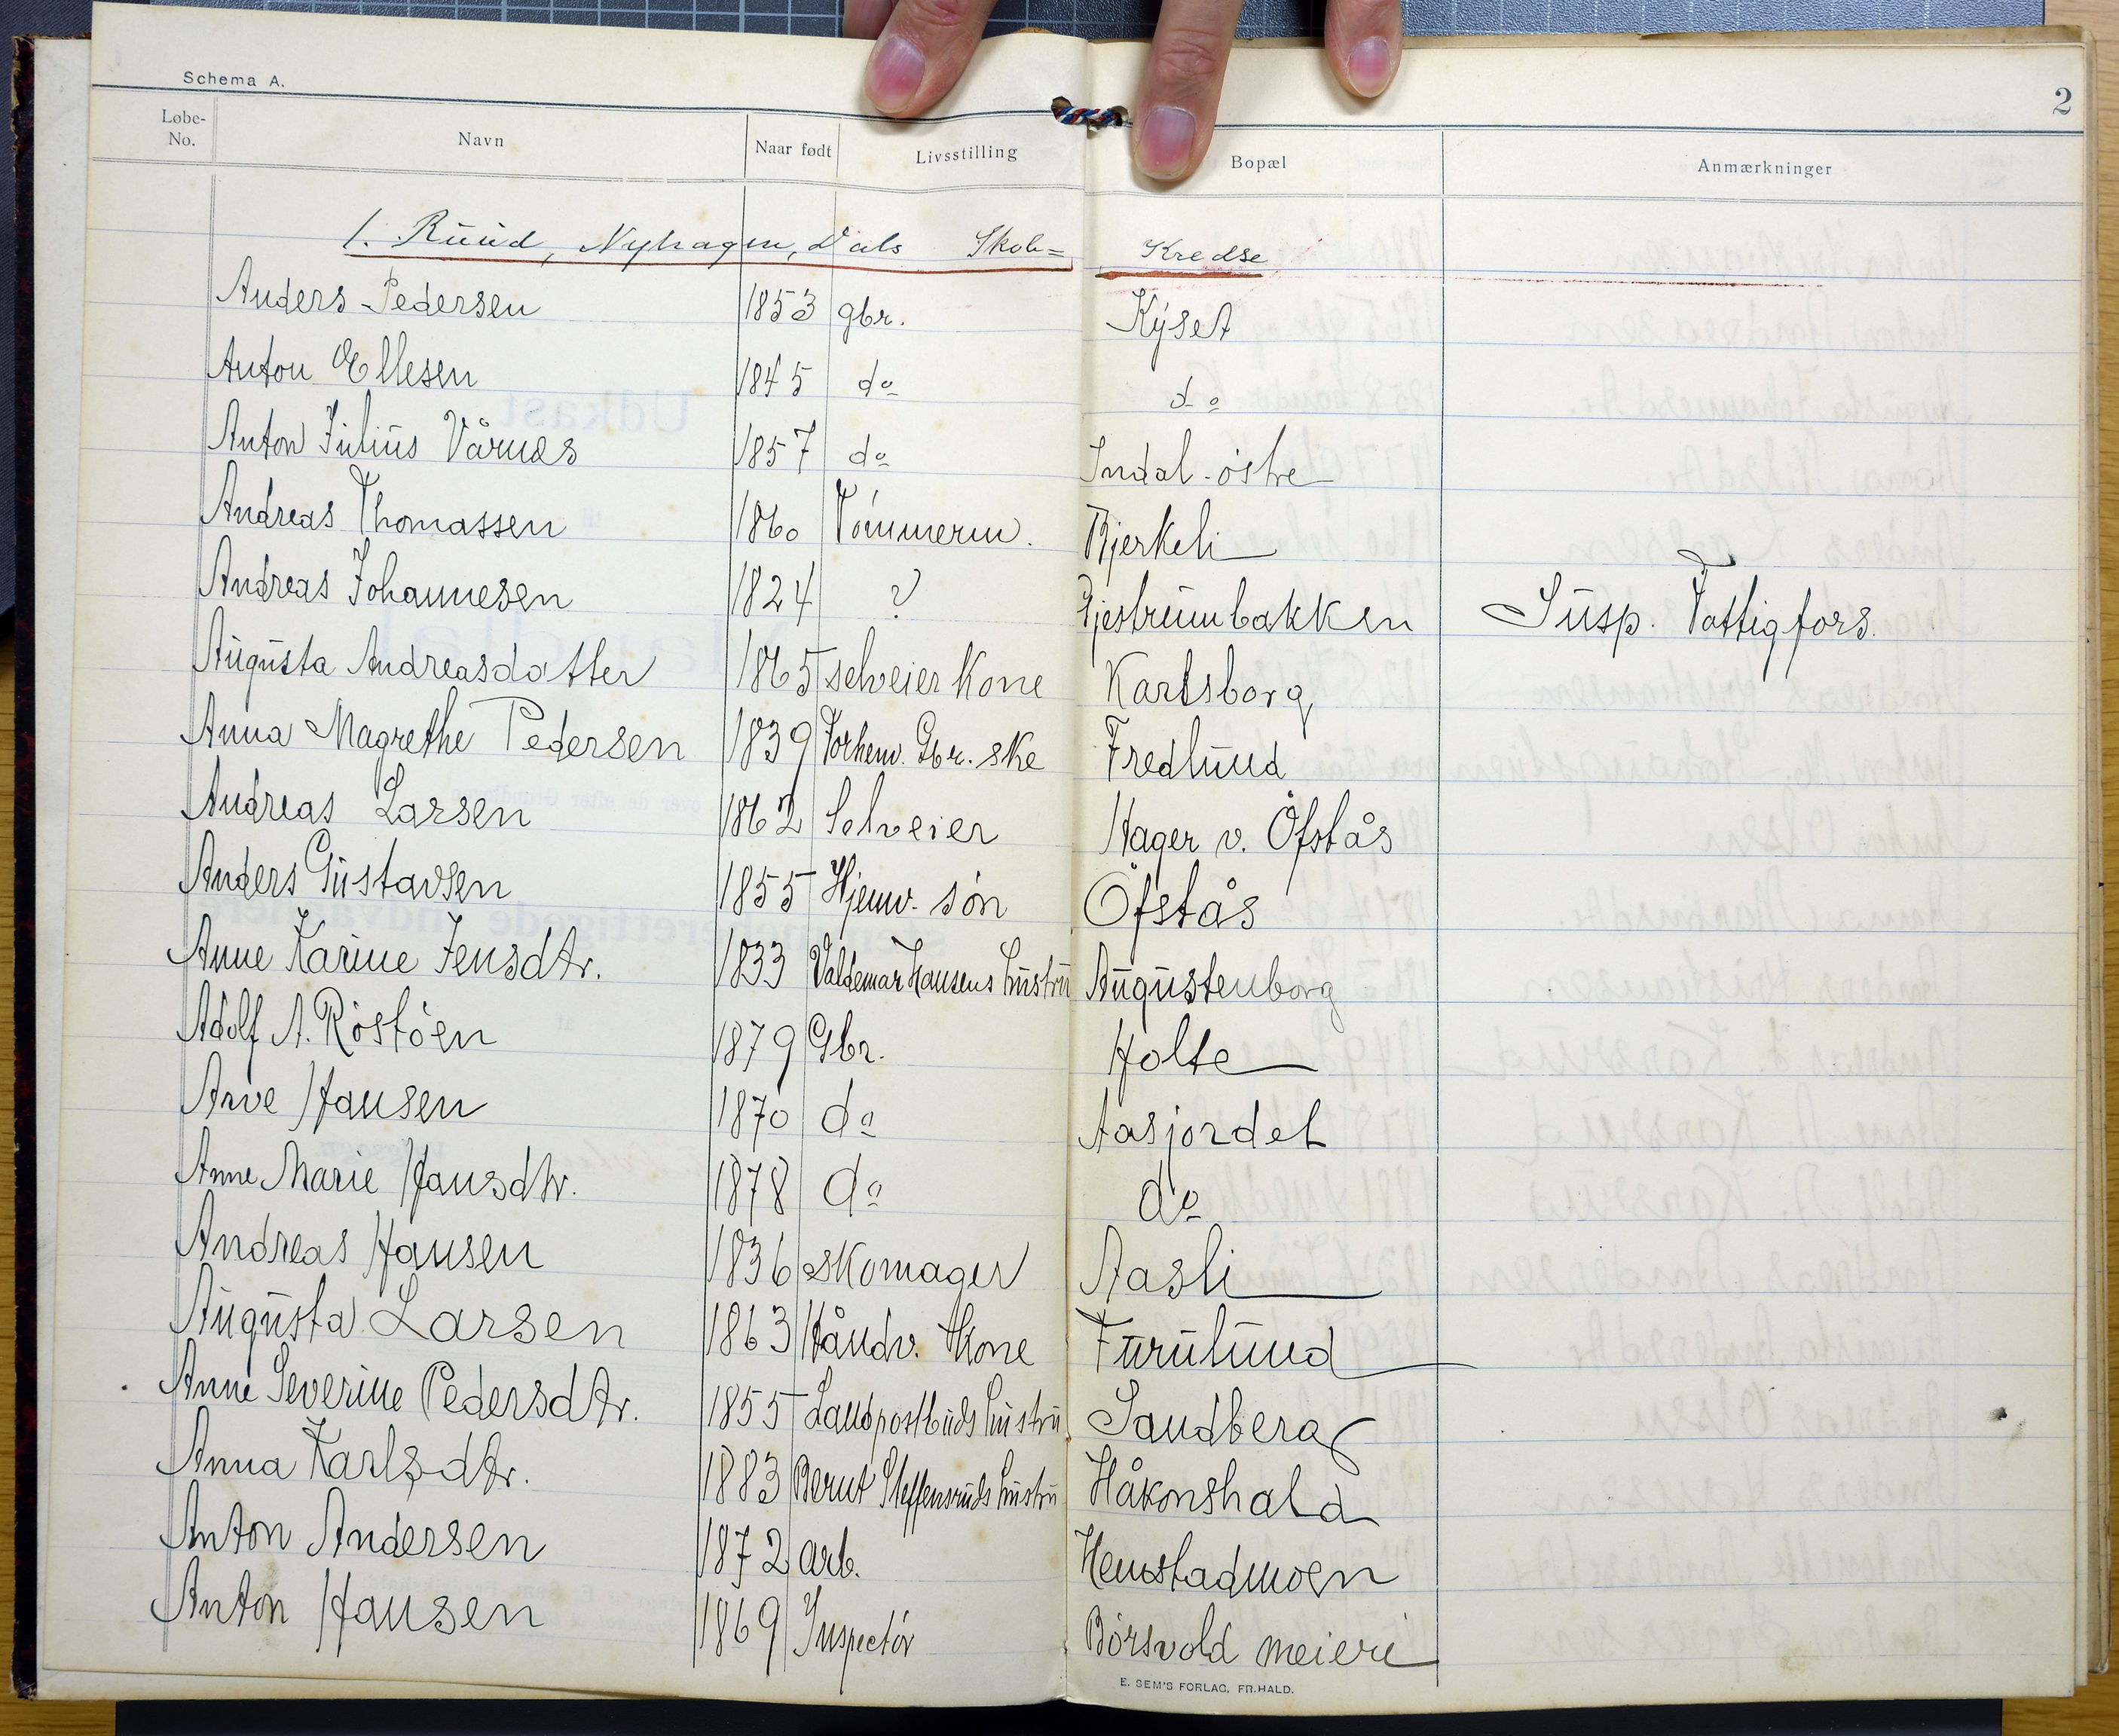 Schema A.
2
Løbe-No. Navn Naar født Livsstilling Bopæl Anmærkninger
1. Ruud, Nyhagen, Dals Skole= Kredse
Anders Pedersen 1853 gbr. Kyset
Anton Ellesen 1845 do do
Anton Julius Vårnæs 1857 do Indal-østre
Andreas Thomassen 1860 Tømmerm. Bjerkeli
Andreas Johannesen 1824 ? Gjestrumbakken Susp. Fattigfors.
Augusta Andreasdatter 1865 selveier Kone Karlsborg
Anna Magrethe Pedersen 1839 Forhenv. Gbr. ske Fredlund
Andreas Larsen 1862 Selveier Hager v. Öfstås
Anders Gustavsen 1855 Hjemv. søn Öfstås
Anne Karine Jensdtr. 1833 Valdemar Hansens hustru Augustenborg
Adolf A. Røstøen 1879 Gbr. Holte
Arve Hansen 1870 do Aasjordet
Anne Marie Hansdtr. 1878 do do
Andreas Hansen 1836 skomager Aasli
Augusta Larsen 1863 Håndv. Kone Furulund
Anne Severine Pedersdtr. 1855 Landpostbuds hustru Sandberg
Anna Karlsdtr. 1883 Bernt Steffensruds hustru Håkonshald
Anton Andersen 1872 arb. Hemstadmoen
Anton Hansen 1869 Inspectör Børsvold meieri
E. SEM'S FORLAG, FR.HALD.